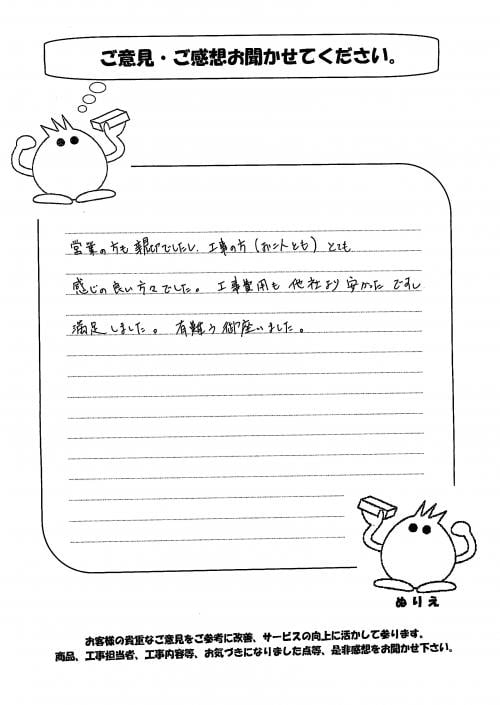 ご意見・ご感想お聞かせてください。
営業の方も親切でしたし、工事の方（ホントとも）とても
感じの良い方々でした。工事費用も他社より安かったですし
満足しました。有難う御座いました。
ぬりえ
お客様の貴重なご意見をご参考に改善、サービスの向上に活かして参ります。
商品、工事担当者、工事内容等、お気づきになりました点等、是非感想をお聞かせ下さい。